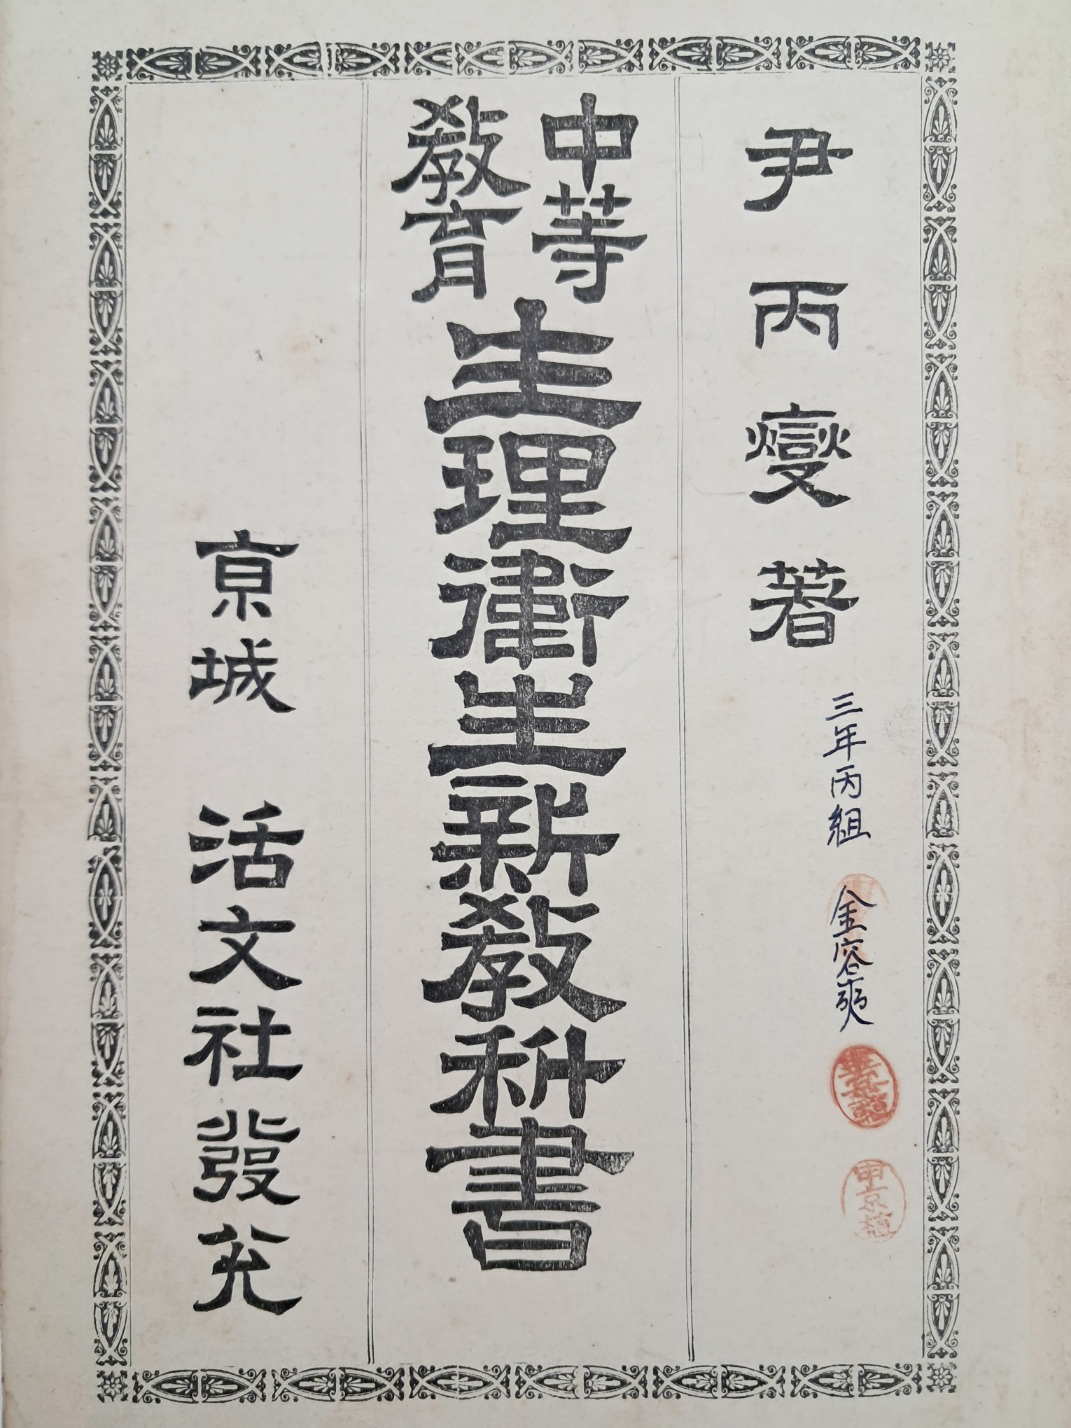 尹丙燮著
三年丙組 金容奭
中等
教育
生理衛生新教科書
京城 活文社發兌